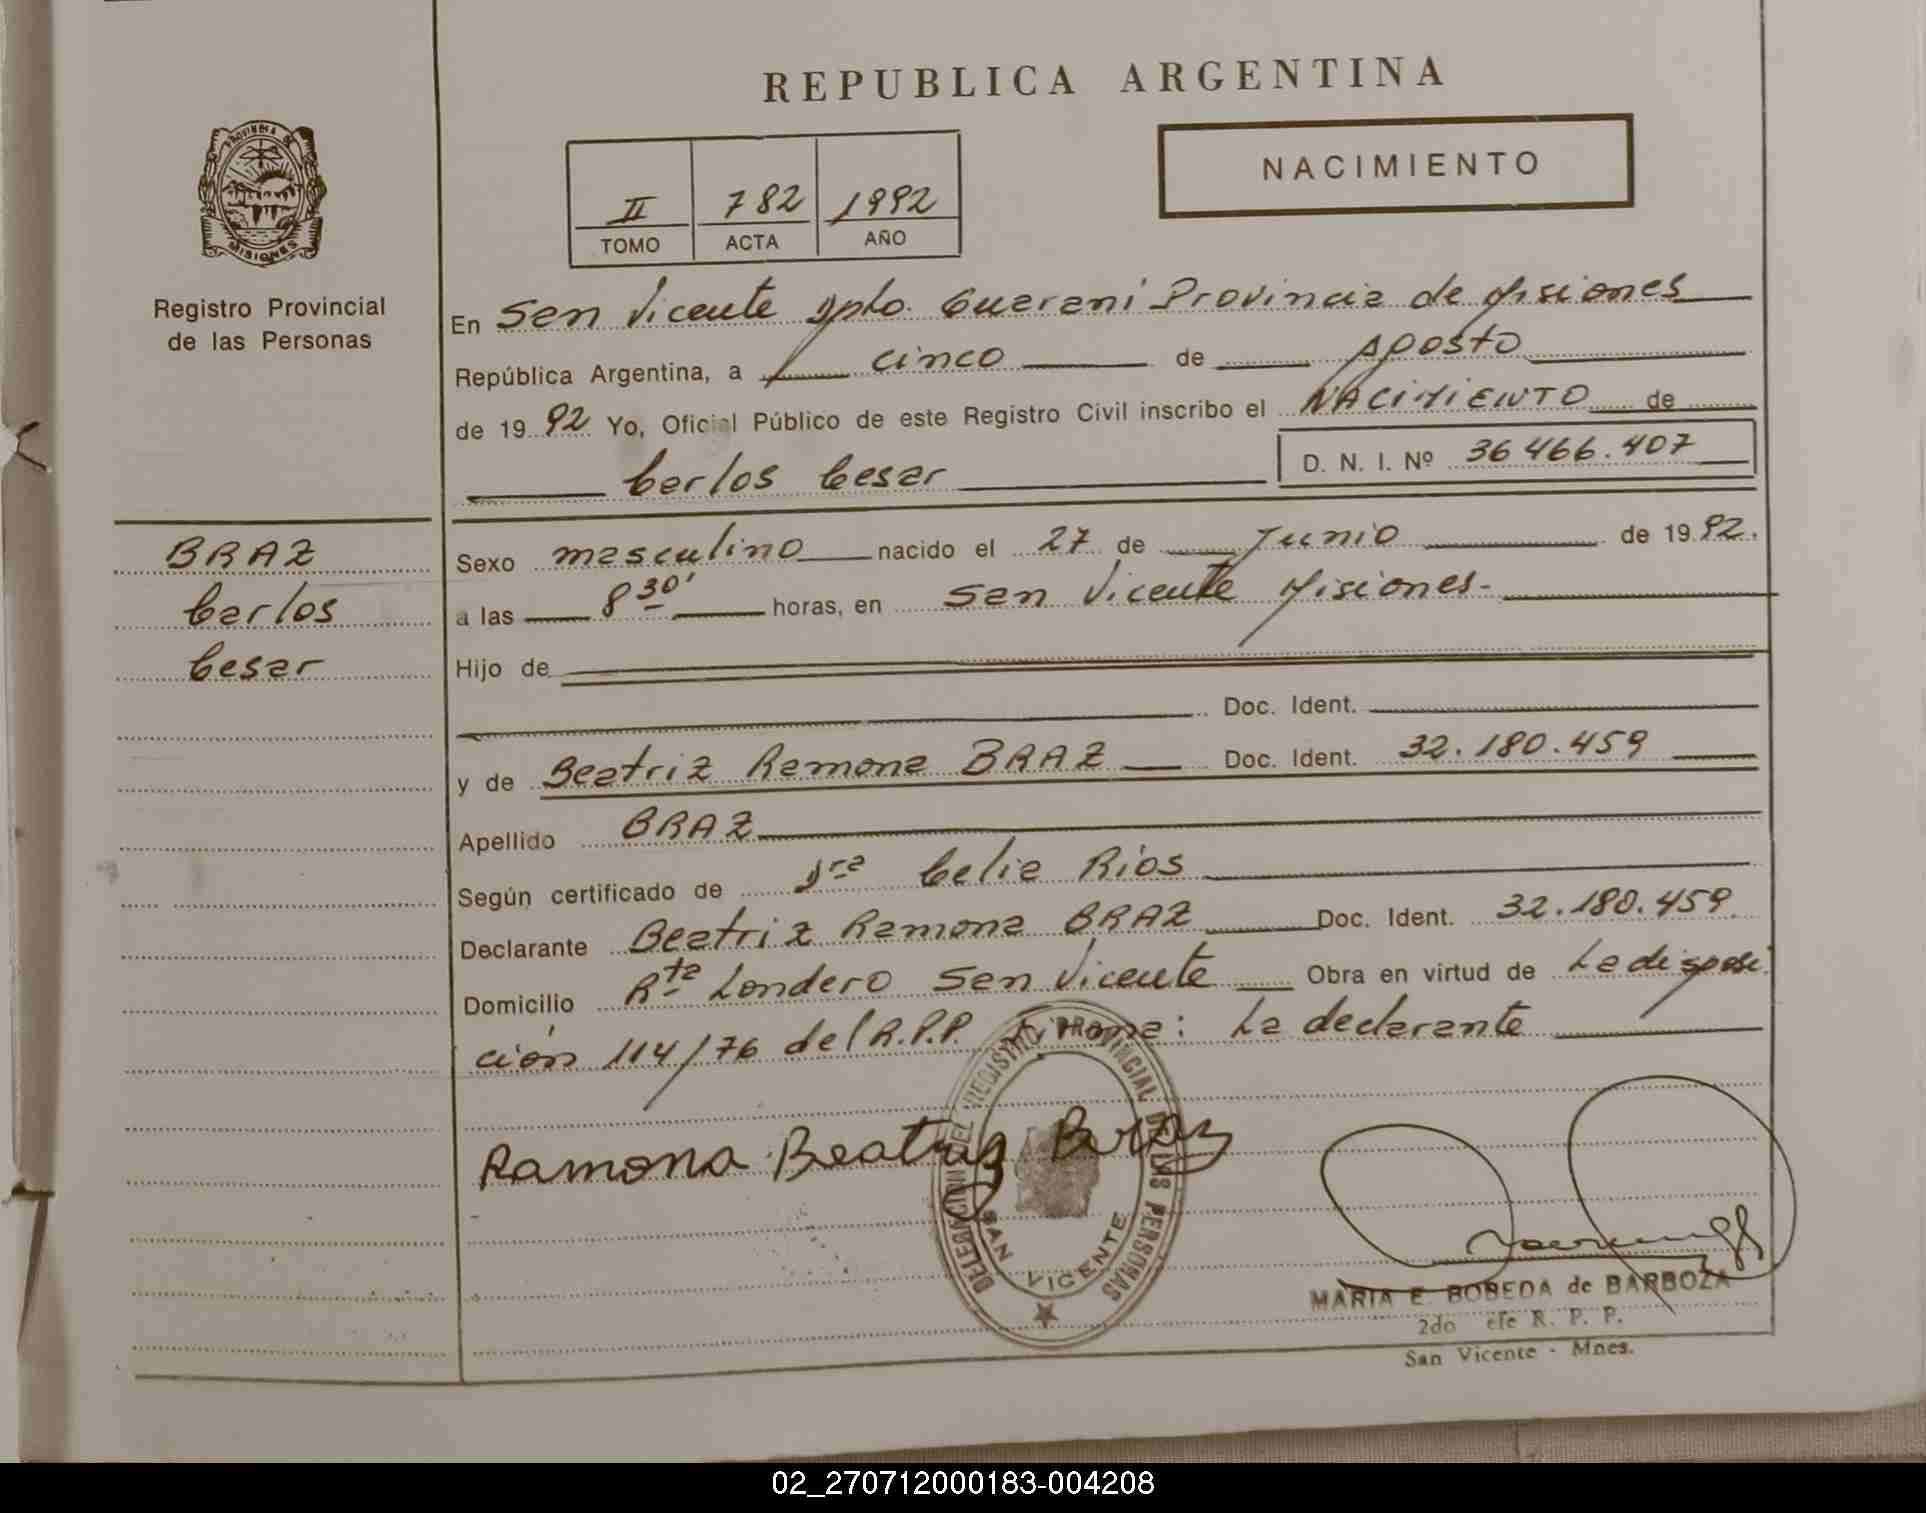 REPUBLICA ARGENTINA
PROVINCIA DE
MISIONES
Registro Provincial
de las Personas
II 782 1992
TOMO ACTA AÑO
NACIMIENTO
En San Vicente Dpto. Guarani Provincia de Misiones
República Argentina, a cinco de Agosto
de 1992 Yo, Oficial Público de este Registro Civil inscribo el NACIMIENTO de
Carlos Cesar
D. N. I. Nº 36466.407
BRAZ
Carlos
Cesar
Sexo masculino nacido el 27 de Junio de 1992.
a las 8 30' horas, en San Vicente Misiones-
Hijo de
Doc. Ident.
y de Beatriz Ramona BRAZ Doc. Ident. 32.180.459
Apellido BRAZ
Según certificado de Dra Celia Rios
Declarante Beatriz Ramona BRAZ Doc. Ident. 32.180.459
Domicilio Rta Londero San Vicente Obra en virtud de La disposi
ción 114/76 del R.P.P. Firma: La declarante
Ramona Beatriz Braz
DELEGACION DEL REGISTRO PROVINCIAL DE LAS PERSONAS
SAN VICENTE
MARIA E. BOBEDA de BARBOZA
2do efe R. P. P.
San Vicente - Mnes.
02_270712000183-004208